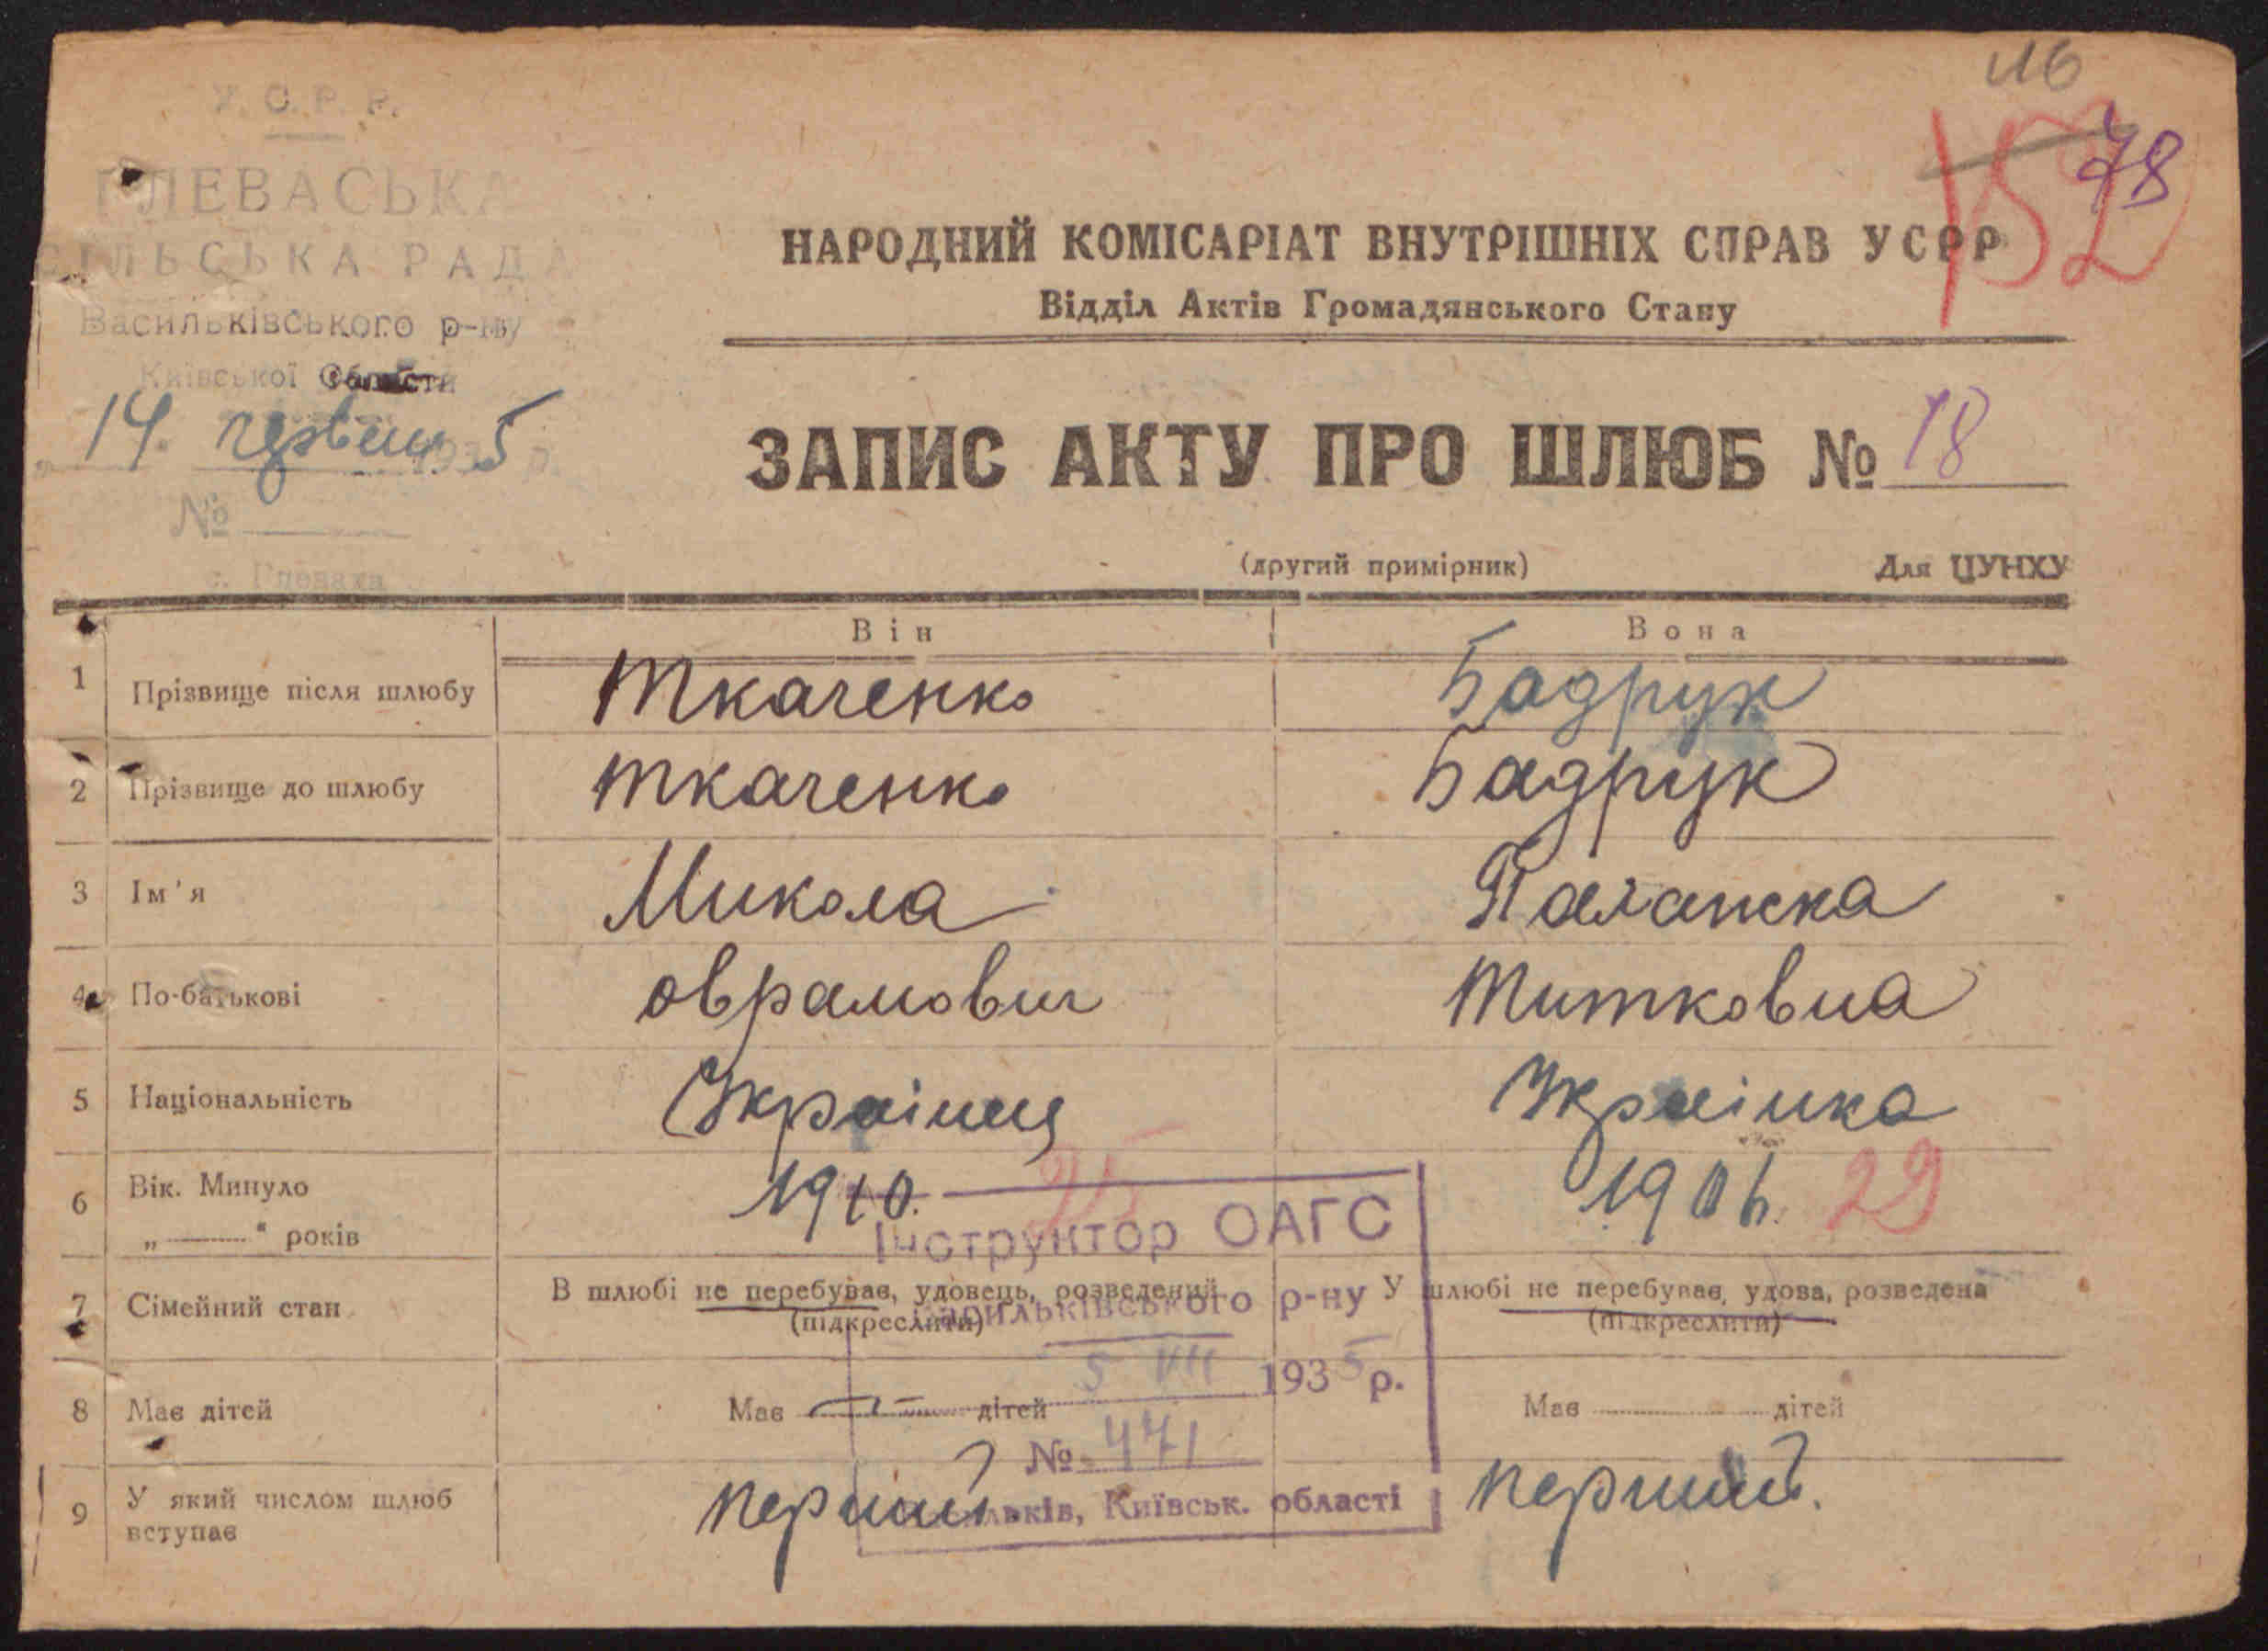 У.С.Р.Р.
ГЛЕВАСЬКА
СІЛЬСЬКА РАДА
Васильківського р-ну
Київської Области
„14" червня 1935 р.
№
с. Глеваха
116
152
78
НАРОДНИЙ КОМІСАРІАТ ВНУТРІШНІХ СПРАВ УСРР
Відділ Актів Громадянського Стану
ЗАПИС АКТУ ПРО ШЛЮБ № 18
(другий примірник) Для ЦУНХУ
Він Вона
1 Прізвище після шлюбу Ткаченко Бадрук
2 Прізвище до шлюбу Ткаченко Бадрук
3 Ім'я Микола Палажка
4 По-батькові Оврамович Титковна
5 Національність Українець Українка
6 Вік. Минуло 1910. 25 1906. 29
„ " років
7 Сімейний стан В шлюбі не перебуває, удовець, розведений У шлюбі не перебуває, удова, розведена
(підкреслити) (підкреслити)
8 Має дітей Має — дітей Має дітей
9 У який числом шлюб вступає перший перший.
Інструктор ОАГС
Васильківського р-ну
5 VII 1935 р.
№ 471
Васильків, Київськ. області